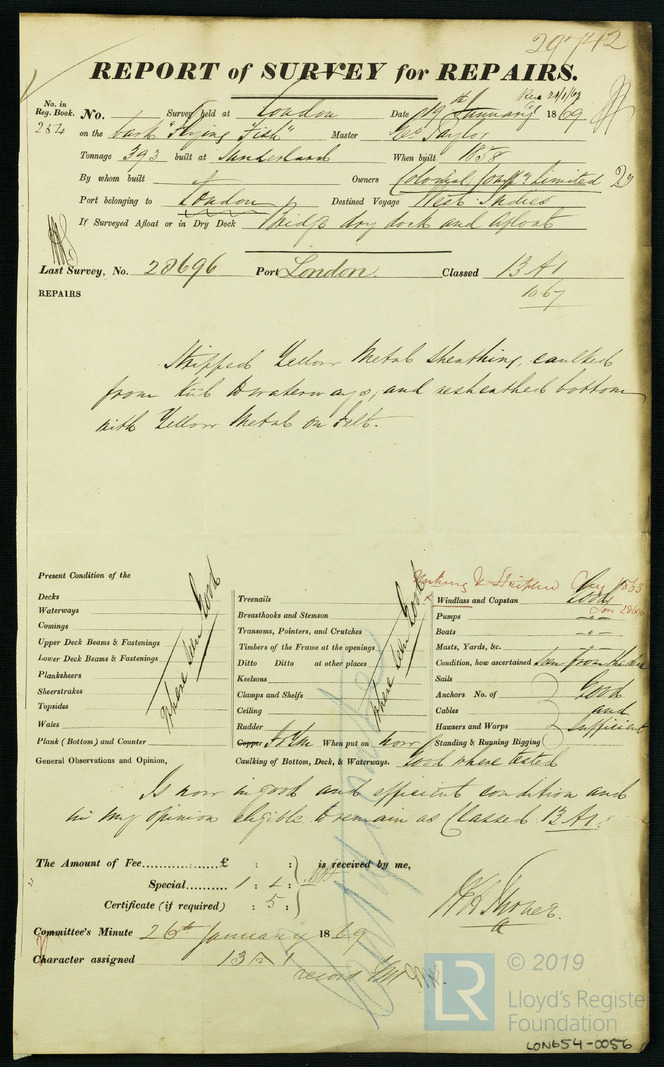 29742
REPORT of SURVEY for REPAIRS.
No. in Reg. Book. No. Survey held at London Date 19th January 1869 Rec 21/1/69
284 on the bark "Flying Fish" Master Taylor
Tonnage 393 built at Sunderland When built 1858
By whom built Owners Colonial Limited
Port belonging to London Destined Voyage West Indies
If Surveyed Afloat or in Dry Dock dry dock and afloat
Last Survey, No. 28696 Port London. Classed 13 A1
REPAIRS 10 67
Stripped Yellow Metal Sheathing, caulked
from Keel to waterways, and resheathed bottom
with Yellow Metal on Felt.
Present Condition of the
Decks
Waterways
Comings
Upper Deck Beams & Fastenings
Lower Deck Beams & Fastenings
Planksheers
Sheerstrakes
Topsides
Wales
Plank (Bottom) and Counter
where seen Good
Treenails
Breasthooks and Stemson
Transoms, Pointers, and Crutches
Timbers of the Frame at the openings
Ditto Ditto at other places
Keelsons
Clamps and Shelfs
Ceiling
Rudder
Copper When put on now
where seen Good
Windlass and Capstan Good
Pumps -"-
Boats -"-
Masts, Yards, &c.
Condition, how ascertained
Sails
Anchors No. of Good
Cables and
Hawsers and Warps Sufficient
Standing & Running Rigging
General Observations and Opinion, Caulking of Bottom, Deck, & Waterways. Good where tested
Is now in good and efficient condition and
in my opinion eligible to remain as Classed 13 A1.
The Amount of Fee £ : : is received by me,
Special 1 : 1 :
Certificate (if required) : 5 :
Committee's Minute 26th January 1869
Character assigned 13 A 1
© 2019
LR
Lloyd's Register
Foundation
LON654-0056